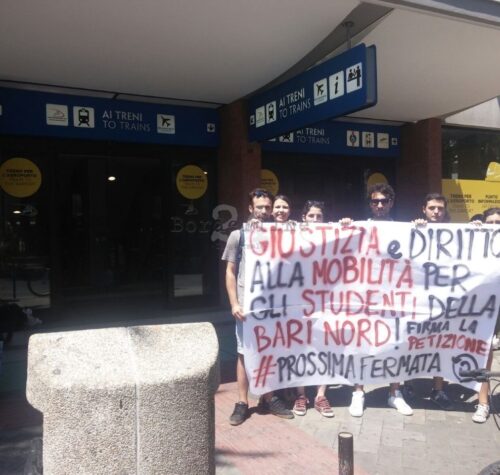 AI TRENI
TO TRAINS
AI TRENI
TO TRAINS
TRENO PER
L'AEROPORTO
GIUSTIZIA e DIRITTO
ALLA MOBILITÀ PER
GLI STUDENTI DELLA
BARI NORD! FIRMA LA
PETIZIONE
#PROSSIMA FERMATA